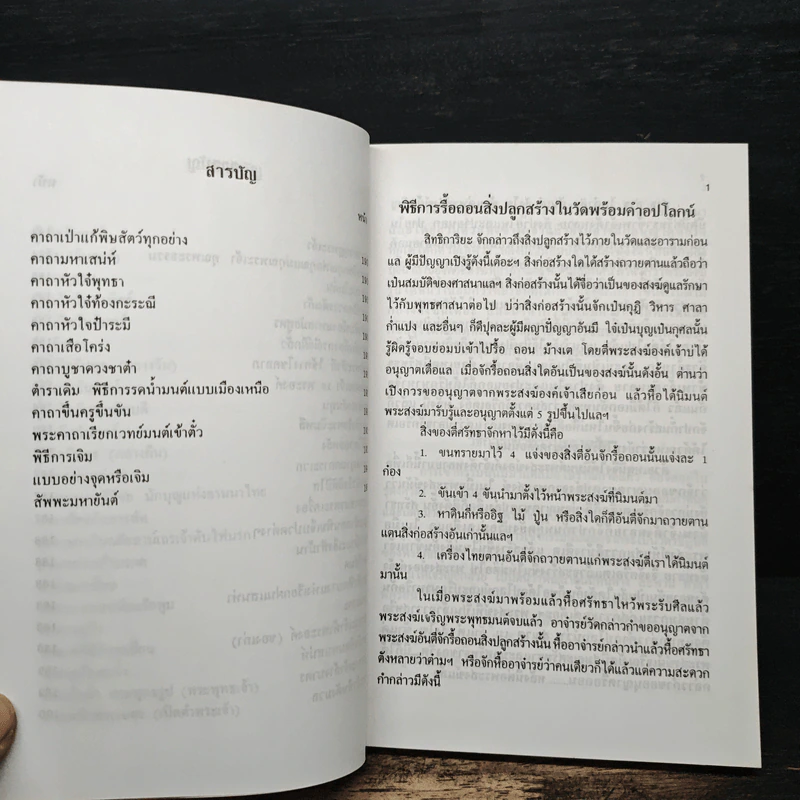 สารบัญ
หน้า
คาถาเป่าแก้พิษสัตว์ทุกอย่าง
คาถามหาเสน่ห์
คาถาหัวใจ๋พุทธา
คาถาหัวใจ๋ท้องกะระณี
คาถาหัวใจป๋าระมี
คาถาเสือโคร่ง
คาถาบูชาดวงชาต๋า
ตำราเดิม พิธีการรดน้ำมนต์แบบเมืองเหนือ
คาถาขึ้นครูขึ้นขัน
พระคาถาเรียกเวทย์มนต์เข้าตั๋ว
พิธีการเจิม
แบบอย่างจุดหรือเจิม
สัพพะมหายันต์
1
พิธีการรื้อถอนสิ่งปลูกสร้างในวัดพร้อมคำอปโลกน์
สิทธิการิยะ จักกล่าวถึงสิ่งปลูกสร้างไว้ภายในวัดและอารามก่อน
แล ผู้มีปัญญาเปิงรู้ดังนี้เต๊อะฯ สิ่งก่อสร้างใดได้สร้างถวายตานแล้วถือว่า
เป๋นสมบัติของศาสนาแลฯ สิ่งก่อสร้างนั้นได้จื่อว่าเป็นของสงฆ์ดูแลรักษา
ไว้กับพุทธศาสนาต่อไป บ่ว่าสิ่งก่อสร้างนั้นจักเป๋นกุฏิ วิหาร ศาลา
กำแปง และอื่นๆ ก็ดีปุคละผู้มีผญาปัญญาอันมี ใจ๋เป๋นบุญเป๋นกุศลนั้น
รู้ผิดรู้จอบย่อมบ่เข้าไปรื้อ ถอน ม้างเต โดยตี่พระสงฆ์องค์เจ้าบ่ได้
อนุญาตเตื่อแล เมื่อจักรื้อถอนสิ่งใดอันเป๋นของสงฆ์นั้นดังอั้น ต่านว่า
เปิงการขออนุญาตจากพระสงฆ์องค์เจ้าเสียก่อน แล้วหื้อได้นิมนต์
พระสงฆ์มารับรู้และอนุญาตตั้งแต่ 5 รูปขึ้นไปแลฯ
สิ่งของตี่ศรัทธาจักหาไว้มีดั่งนี้คือ
1. ขนทรายมาไว้ 4 แจ่งของสิ่งตี่อันจักรื้อถอนนั้นแจ่งละ 1
ก๋อง
2. ขันเข้า 4 ขันนำมาตั้งไว้หน้าพระสงฆ์ที่นิมนต์มา
3. หาดินกี่หรืออิฐ ไม้ ปู่น หรือสิ่งใดก็ดีอันตี่จักมาถวายตาน
แตนสิ่งก่อสร้างอันเก่านั้นแลฯ
4. เครื่องไทยตานอันตี่จักถวายตานแก่พระสงฆ์ตี่เราได้นิมนต์
มานั้น
ในเมื่อพระสงฆ์มาพร้อมแล้วหื้อศรัทธาไหว้พระรับศีลแล้ว
พระสงฆ์เจริญพระพุทธมนต์จบแล้ว อาจ๋ารย์วัดกล่าวกำขออนุญาตจาก
พระสงฆ์อันตี่จักรื้อถอนสิ่งปลูกสร้างนั้น หื้ออาจ๋ารย์กล่าวนำแล้วหื้อศรัทธา
ตั้งหลายว่าต๋ามฯ หรือจักหื้ออาจ๋ารย์ว่าคนเดียวก็ได้แล้วแต่ความสะดวก
กำกล่าวมีดังนี้